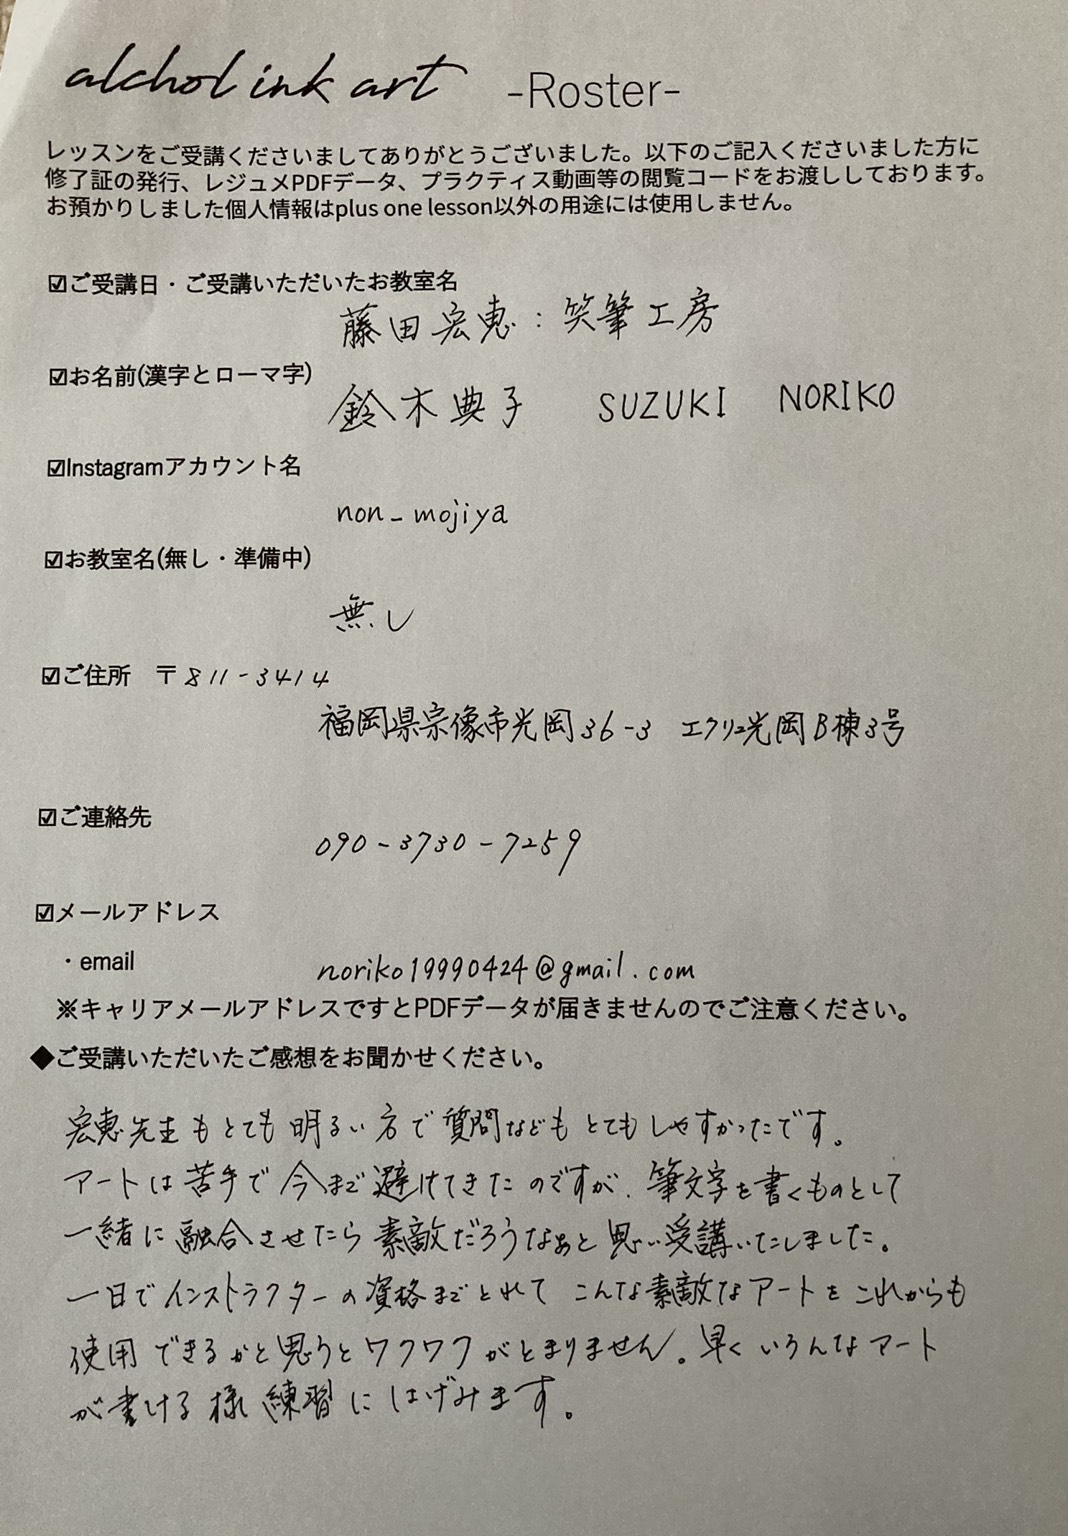 alchol ink art -Roster-
レッスンをご受講くださいましてありがとうございました。以下のご記入くださいました方に
修了証の発行、レジュメPDFデータ、プラクティス動画等の閲覧コードをお渡ししております。
お預かりしました個人情報はplus one lesson以外の用途には使用しません。
☑ご受講日・ご受講いただいたお教室名
藤田宏恵：笑筆工房
☑お名前(漢字とローマ字)
鈴木典子 SUZUKI NORIKO
☑Instagramアカウント名
non_mojiya
☑お教室名(無し・準備中)
無し
☑ご住所 〒811-3414
福岡県宗像市光岡36-3 エクリュ光岡B棟3号
☑ご連絡先
090-3730-7259
☑メールアドレス
・email noriko19990424@gmail.com
※キャリアメールアドレスですとPDFデータが届きませんのでご注意ください。
◆ご受講いただいたご感想をお聞かせください。
宏恵先生もとても明るい方で質問などもとてもしやすかったです。
アートは苦手で今まで避けてきたのですが、筆文字を書くものとして
一緒に融合させたら素敵だろうなぁと思い受講いたしました。
一日でインストラクターの資格までとれてこんな素敵なアートをこれからも
使用できるかと思うとワクワクがとまりません。早くいろんなアート
が書ける様練習にはげみます。